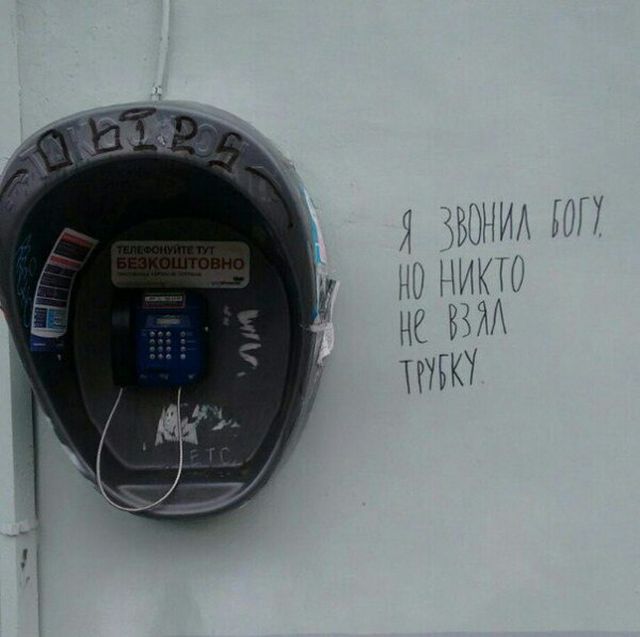 ТЕЛЕФОНУЙТЕ ТУТ
БЕЗКОШТОВНО
Я ЗВОНИЛ БОГУ,
НО НИКТО
НЕ ВЗЯЛ
ТРУБКУ.
ЕТС